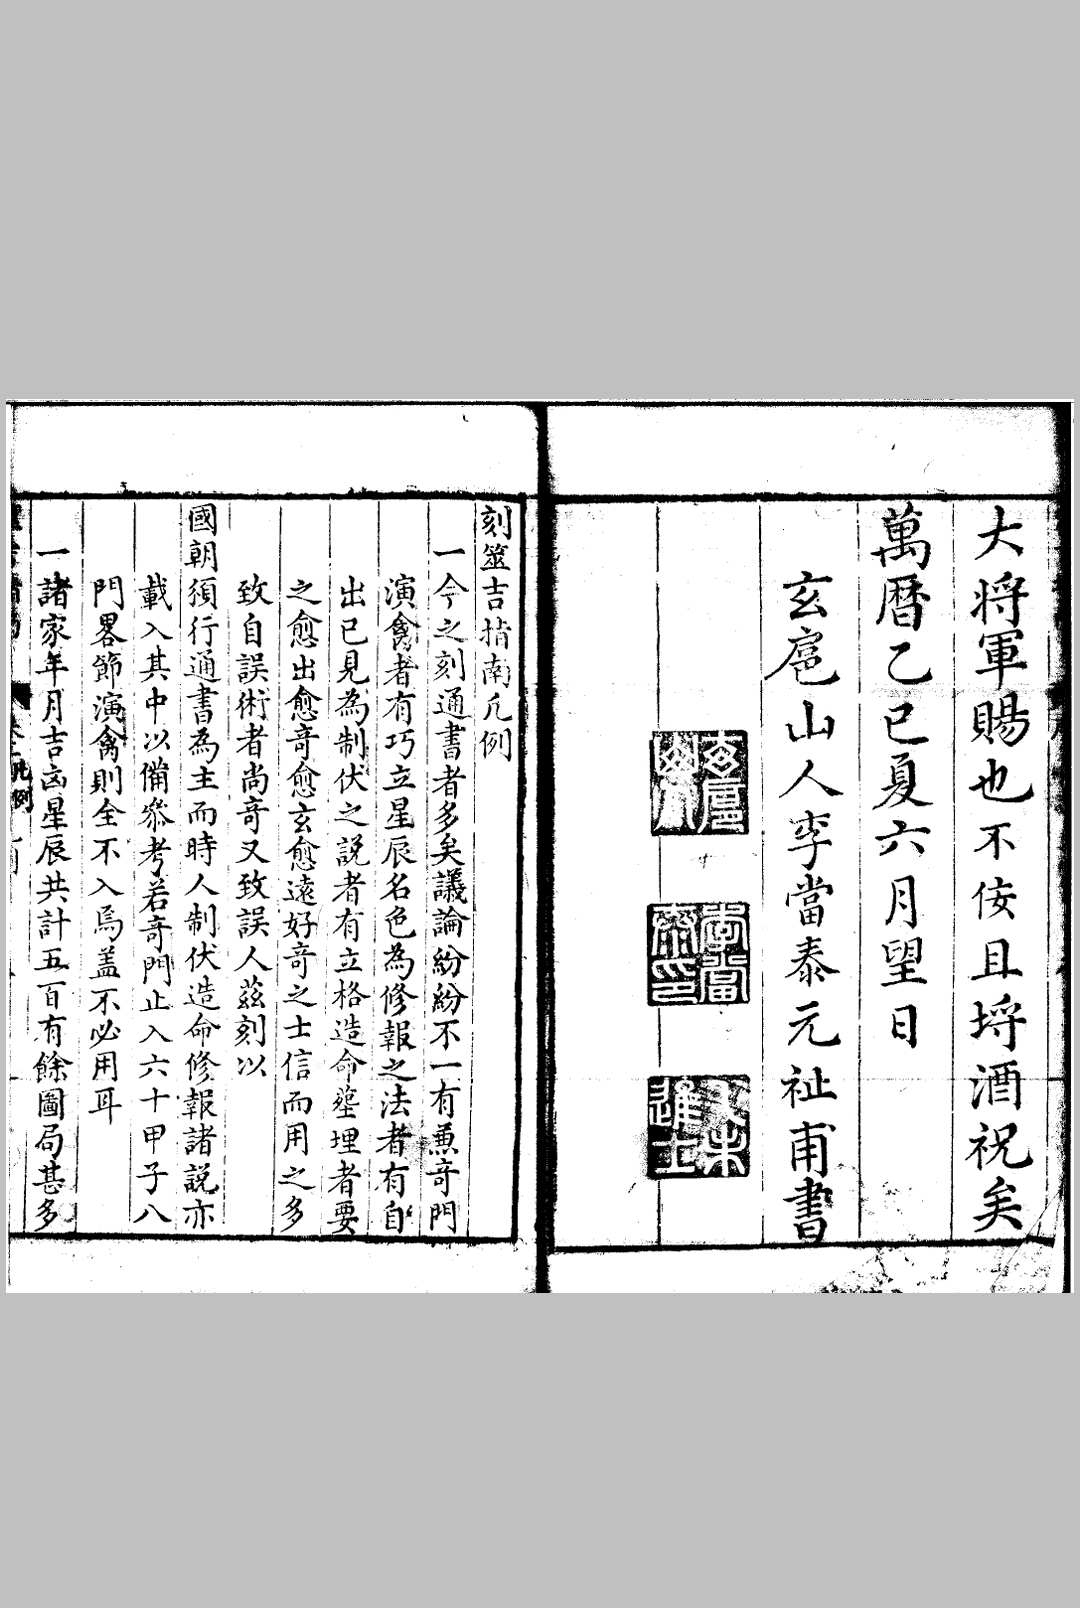 大將軍賜也不佞且埒酒祝矣
萬曆乙巳夏六月望日
玄扈山人李當泰元祉甫書
玄扈山人
李當泰印
辛未進士
刻筮吉指南凡例
一今之刻通書者多矣議論紛紛不一有兼竒門
演禽者有巧立星辰名色為修報之法者有自
出己見為制伏之説者有立格造命塟埋者要
之愈出愈竒愈玄愈遠好竒之士信而用之多
致自誤術者尚竒又致誤人茲刻以
國朝須行通書為主而時人制伏造命修報諸説亦
載入其中以備叅考若竒門止入六十甲子八
門畧節演禽則全不入焉盖不必用耳
一諸家年月吉凶星辰共計五百有餘圖局甚多